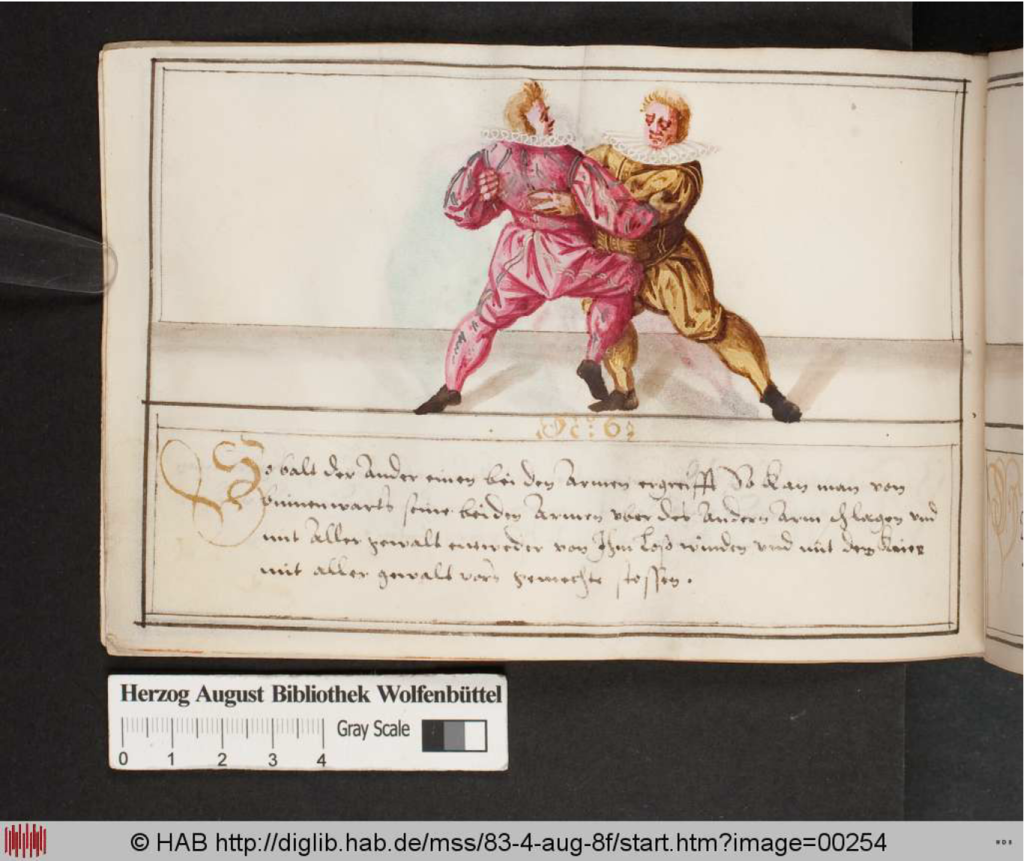 No: 6:
So balt der Ander einen bei den Armen ergreifft So kan man von
binnenwarts seine beiden Armen vber des Andern Arm schlagen vnd
mit Aller gewalt entweder von Ihm loß winden vnd mit dem knie
mit aller gewalt vors gemechte stossen.
Herzog August Bibliothek Wolfenbüttel
Gray Scale
0 1 2 3 4
© HAB http://diglib.hab.de/mss/83-4-aug-8f/start.htm?image=00254